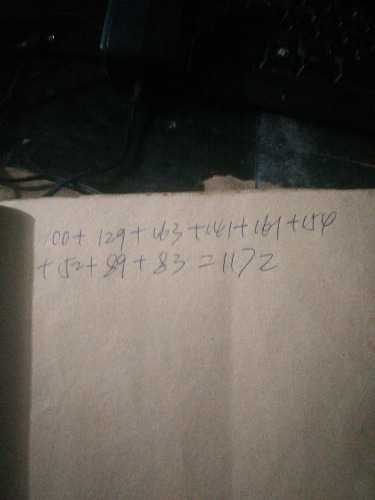 100+129+163+141+161+154
+152+89+83=1172